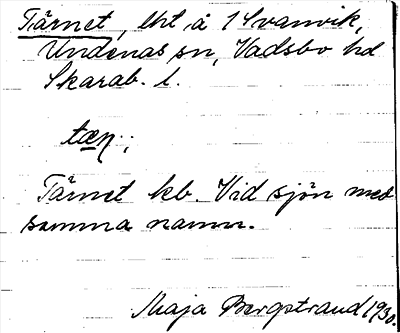 Tärnet, lht å 1 Svanvik,
Undenäs sn, Vadsbo hd
Skarab. l.
tæṇ.;
Tärnet kb. Vid sjön med
samma namn.
Maja Bergstrand 1930.